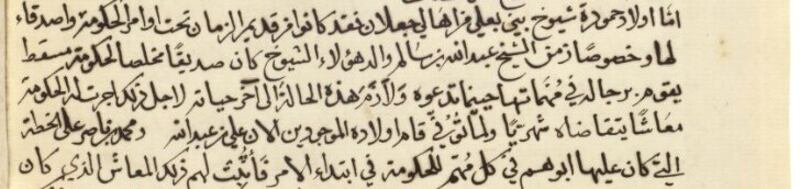 امّا اولاد حمودة شيوخ بني بعلي فراهالي جعلان نقد كانوا فر قديم الزمان تحت اوامر الحكومة واصدقاء
لها وخصوصًا زمن الشيخ عبدالله بن سالم والد هؤلاء الشيوخ كان صديقًا مخلصا لحكومة مسقط
يقوم برجاله في مُهمّاتها حينما تدعوه ولازَمَ هذه الحالة الى آخر حياته لاجل ذلك اجرت له الحكومة
معاشًا يتقاضاه شهريًا ولمّا تُوفّي قام اولاده الموجودين الآن علي بن عبدالله ومحمد بن ناصر على الخطة
التي كان عليها ابوهم في كل مهمّ للحكومة في ابتداء الامر فأثبتت لهم ذلك المعاش الذي كان